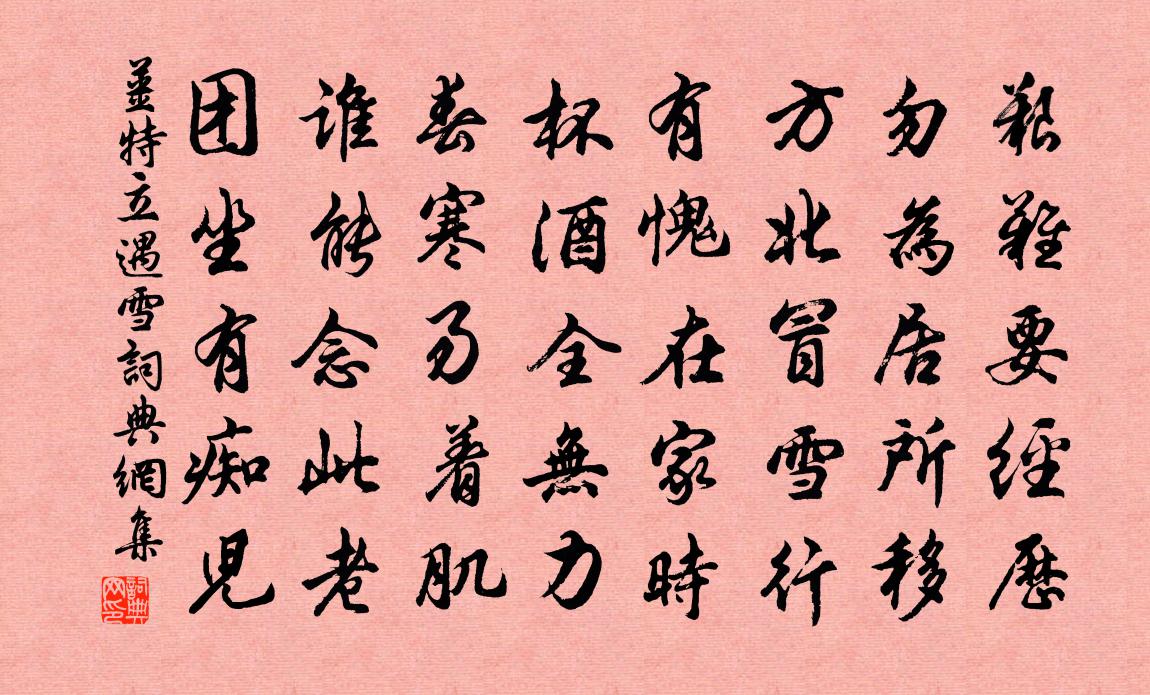 艱難要經歷
勿為居所移
方此冒雪行
有愧在家時
杯酒全無力
春寒易着肌
誰能念此老
团坐有痴児
姜特立遇雪詞典網集
詞典網印